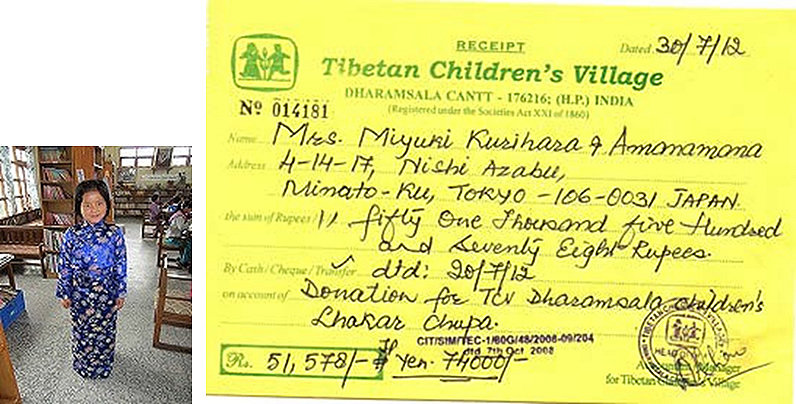 RECEIPT
Dated 30/7/12
Tibetan Children's Village
DHARAMSALA CANTT - 176216; (H.P.) INDIA
(Registered under the Societies Act XXI of 1860)
No 014181
Name Mrs. Miyuki Kurihara & Amanamana
Address 4-14-17, Nishi Azabu,
Minato-Ku, TOKYO - 106-0031 JAPAN
the sum of Rupees fifty One Thousand five Hundred
and Seventy Eight Rupees.
By Cash / Cheque / Transfer ✓ dtd: 20/7/12
on account of Donation for TCV Dharamsala children's
Lhakar Chupa.
CIT/SIM/TEC-1/80G/48/2008-09/204
dtd 7th Oct 2008
Rs. 51,578/- Yen. 74000/-
Manager
for Tibetan Children's Village